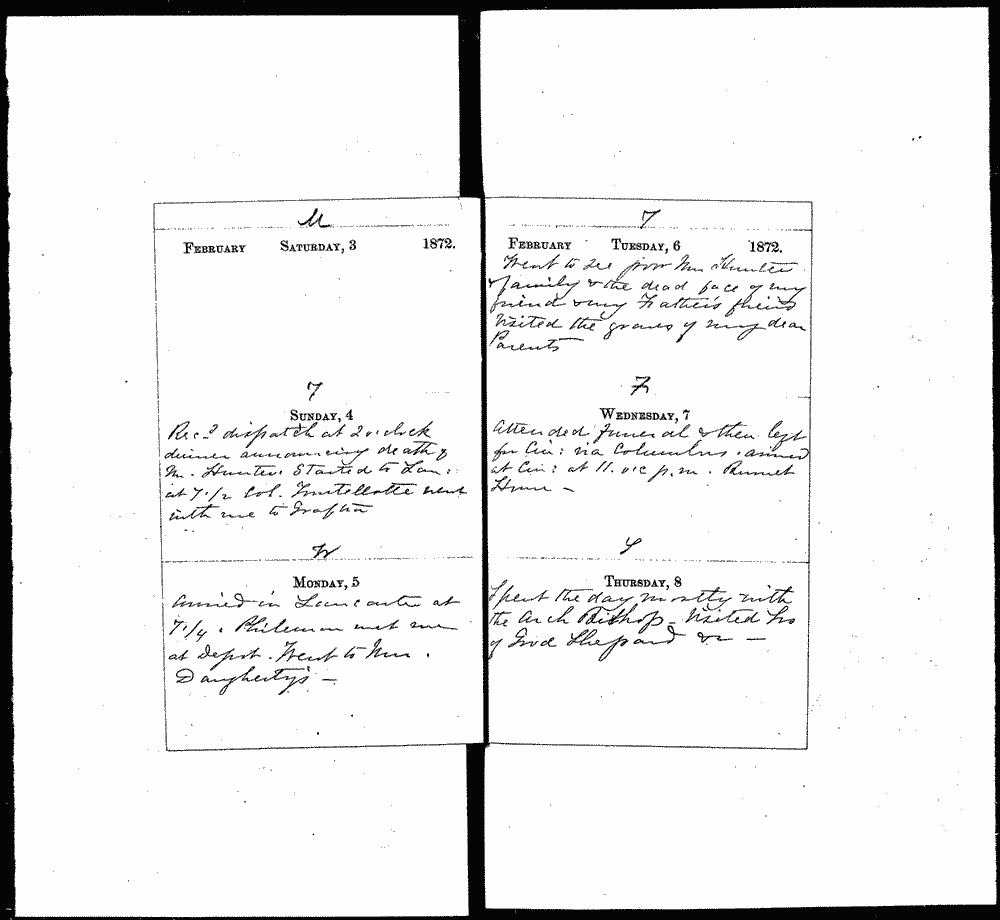 M
FEBRUARY SATURDAY, 3 1872.
T
SUNDAY, 4
Rec.d dispatch at 2 o'clock
dinner announcing death of
Mr. Hunter. Started to Lan:
at 7.1/2 Col. went
with me to Grafton
W
MONDAY, 5
arrived in Lancaster at
7.1/4. Philemon met me
at Depot. Went to Mrs.
Daugherty's —
T
FEBRUARY TUESDAY, 6 1872.
Went to see poor Mrs Hunter
& family & the dead face of my
friend & my Father's friend
Visited the graves of my dear
Parents
F
WEDNESDAY, 7
Attended funeral & then left
for Cin: via Columbus. arrived
at Cin: at 11. o'c p.m. Burnet
House —
S
THURSDAY, 8
Spent the day mostly with
the Arch Bishop — Visited
of Good Shepard &c —